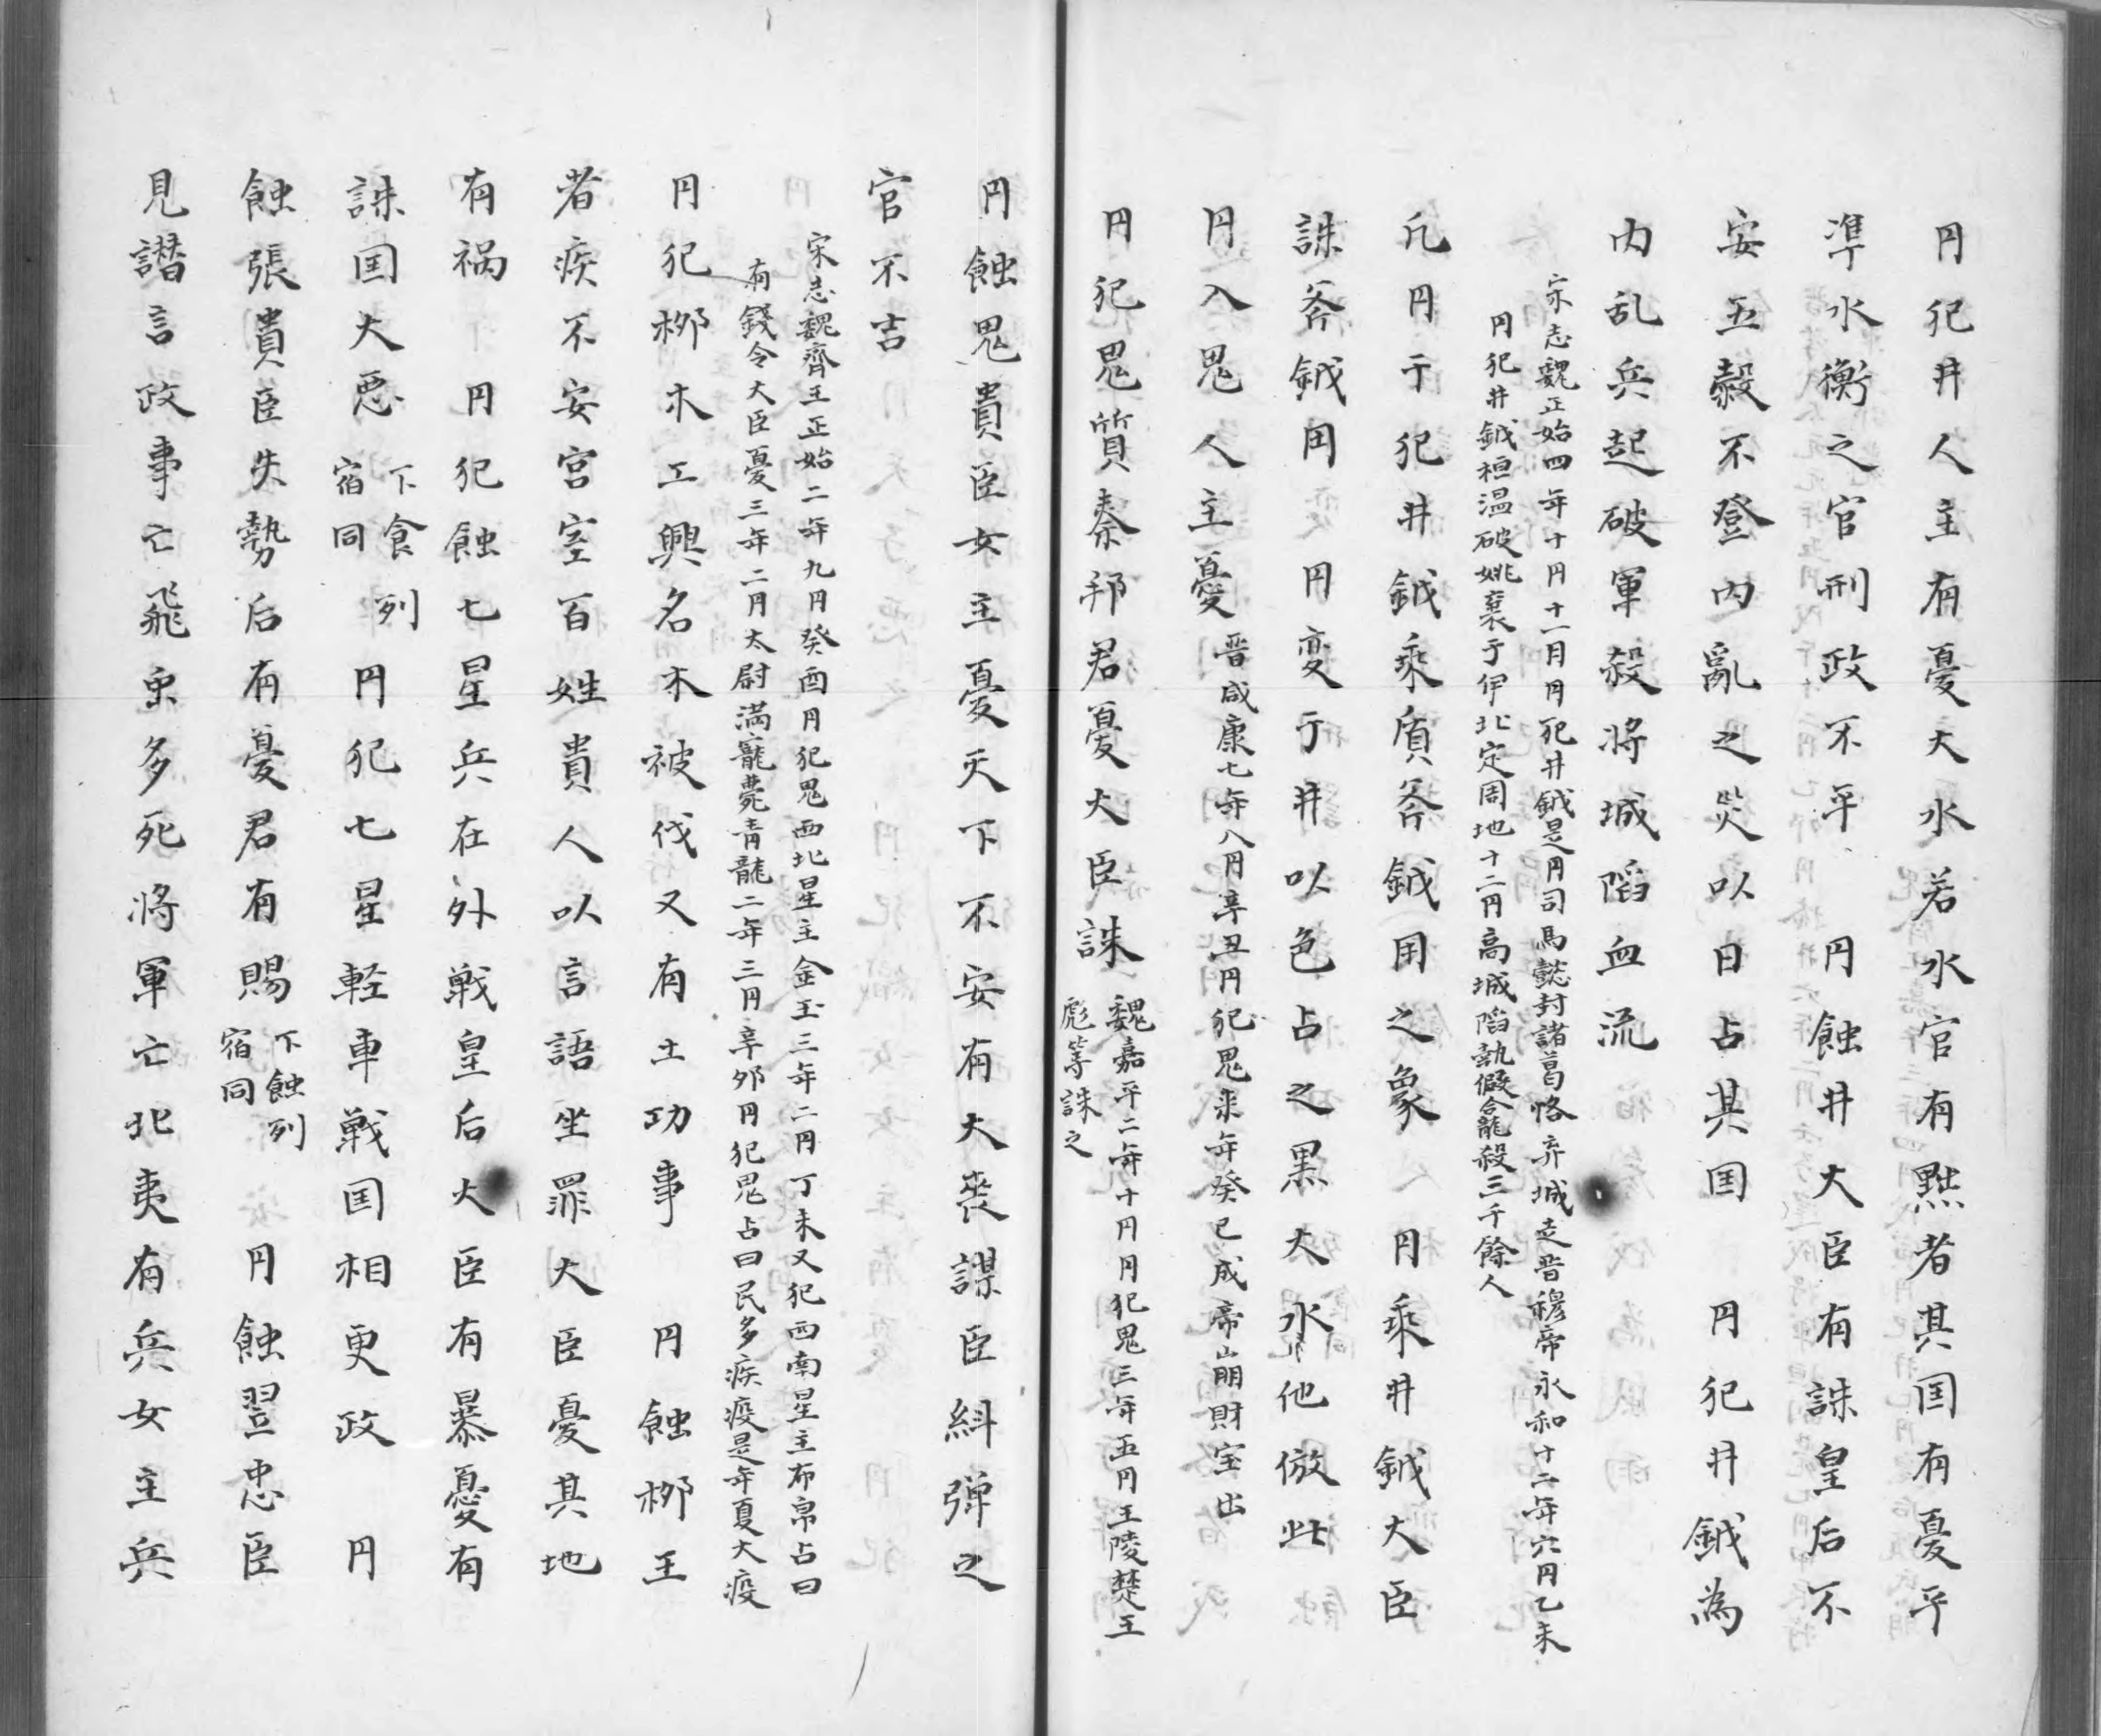 円犯井人主有憂大水若水官有黜者其国有憂平
準水衡之官刑政不平　円蝕井大臣有誅皇后不
安五穀不登内亂之災以日占其国　円犯井鉞為
内乱兵起破軍殺将城陷血流
宋志魏正始四年十円十一月円死井鉞是円司馬懿封諸葛恪弃城走晋穆帝永和十二年六円乙未
円犯井鉞桓温破姚襄于伊北定周地十二円高城陷執假合龍殺三千餘人
凡円于犯井鉞乘質斧鉞用之象　円乘井鉞大臣
誅斧鉞用　円変于井以色占之黒大水他倣此
円入鬼人主憂 晋咸康七年八円辛丑円犯鬼来年癸巳成帝崩財宝出
円犯鬼質秦邦君憂大臣誅 魏嘉平二年十円円犯鬼三年五円王陵楚王
彪等誅之
円蝕鬼貴臣女主憂天下不安有大喪謀臣糾弾之
官不吉
宋志魏齊王正始二年九円癸酉円犯鬼西北星主金玉三年二円丁未又犯西南星主布帛占曰
有錢令大臣憂三年二円太尉満寵薨青龍二年三円辛夘円犯鬼占曰民多疾疫是年夏大疫
円犯栁木工興名木被伐又有土功事　円蝕栁王
者疾不安宮室百姓貴人以言語坐罪大臣憂其地
有禍　円犯蝕七星兵在外戦皇后大臣有暴憂有
誅国大悪 下食列
宿同 円犯七星軽車戦国相更政　円
蝕張貴臣失勢后有憂君有賜 下蝕列
宿同 円蝕翌忠臣
見譖言政事亡飛虫多死将軍亡北夷有兵女主兵